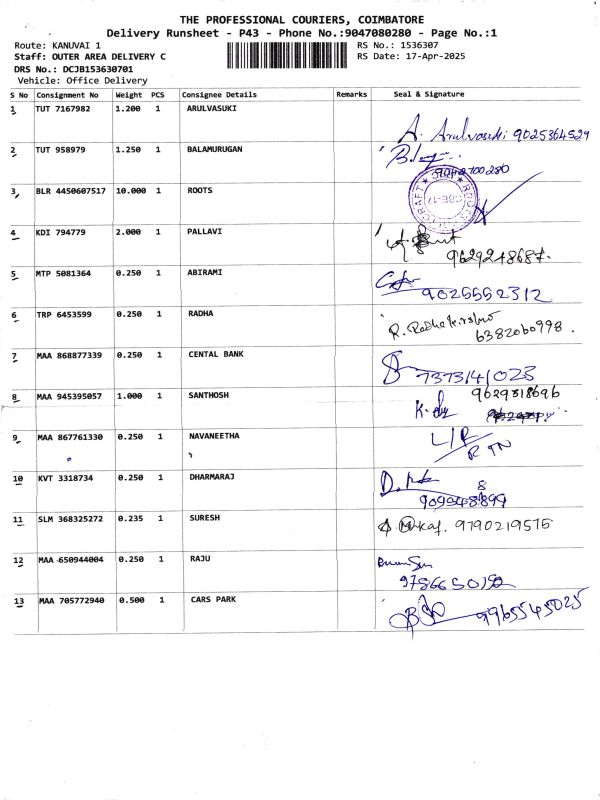 THE PROFESSIONAL COURIERS, COIMBATORE
Delivery Runsheet - P43 - Phone No.:9047080280 - Page No.:1
Route: KANUVAI 1 RS No.: 1536307
Staff: OUTER AREA DELIVERY C RS Date: 17-Apr-2025
DRS No.: DCJB153630701
Vehicle: Office Delivery
S No Consignment No Weight PCS Consignee Details Remarks Seal & Signature
1 TUT 7167982 1.200 1 ARULVASUKI
A. Arulvasuki 9025364529
2 TUT 958979 1.250 1 BALAMURUGAN
3 BLR 4450607517 10.000 1 ROOTS
4 KDI 794779 2.000 1 PALLAVI
9629248687.
5 MTP 5081364 0.250 1 ABIRAMI
9025552312
6 TRP 6453599 0.250 1 RADHA
6382060998.
7 MAA 868877339 0.250 1 CENTAL BANK
7373141023
8 MAA 945395057 1.000 1 SANTHOSH 9629318696
9 MAA 867761330 0.250 1 NAVANEETHA
10 KVT 3318734 0.250 1 DHARMARAJ
11 SLM 368325272 0.235 1 SURESH
9790219575
12 MAA 650944004 0.250 1 RAJU
13 MAA 705772940 0.500 1 CARS PARK
9965545025